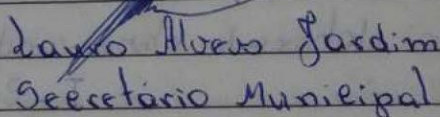 Lauro Alves Jardim
Secretário Municipal